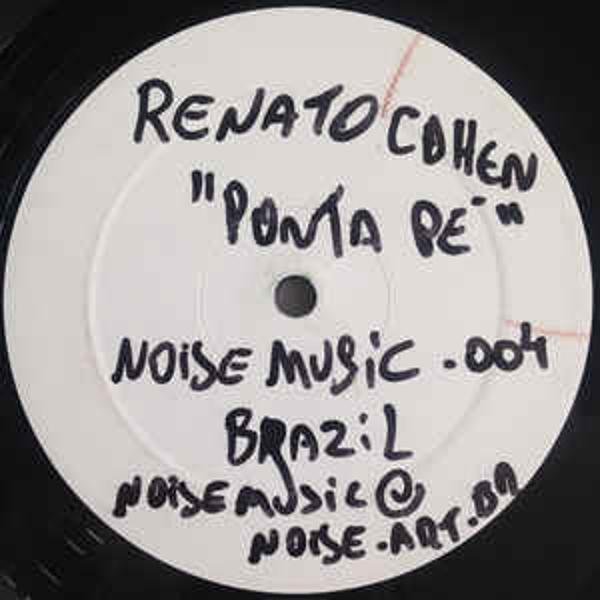 RENATO COHEN
"PONTA PÉ"
NOISE MUSIC .004
BRAZIL
NOISEMUSIC@
NOISE.ART.BR